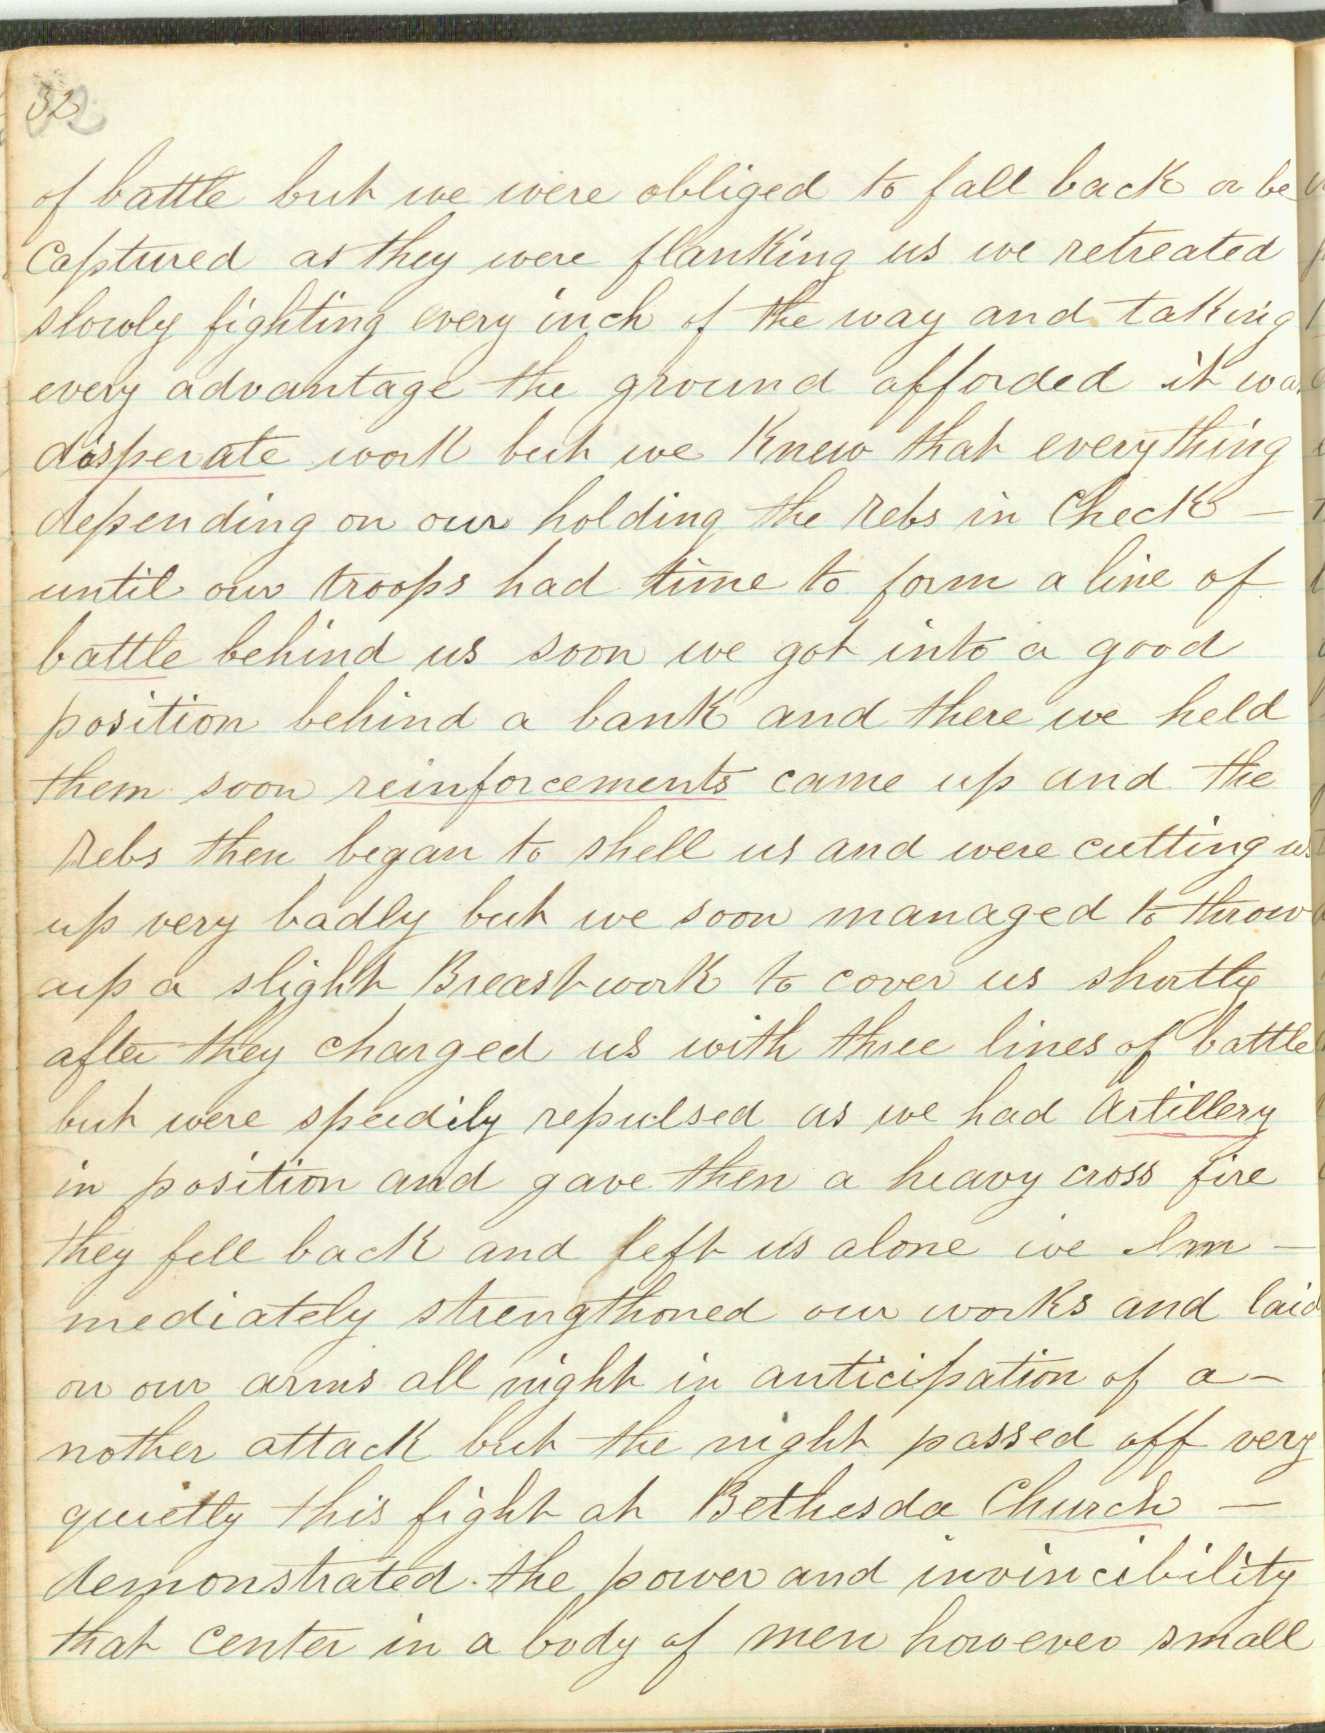 32
of battle but we were obliged to fall back or be
captured as they were flanking us we retreated
slowly fighting every inch of the way and taking
every advantage the ground afforded it was
disperate work but we knew that everything
depending on our holding the Rebs in Check —
until our troops had time to form a line of
battle behind us soon we got into a good
position behind a bank and there we held
them soon reinforcements came up and the
Rebs then began to shell us and were cutting us
up very badly but we soon managed to throw
up a slight Breastwork to cover us shortly
after they charged us with three lines of battle
but were speedily repulsed as we had Artillery
in position and gave then a heavy cross fire
they fell back and left us alone we Im —
mediately strengthoned our works and laid
on our arms all night in anticipation of a —
nother attack but the night passed off very
quietly this fight at Bethesda Church —
demonstrated the power and invincibility
that center in a body of men however small